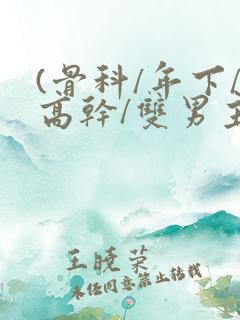 (骨科/年下/
高幹/雙男主
王晓荣
未经同意禁止转载